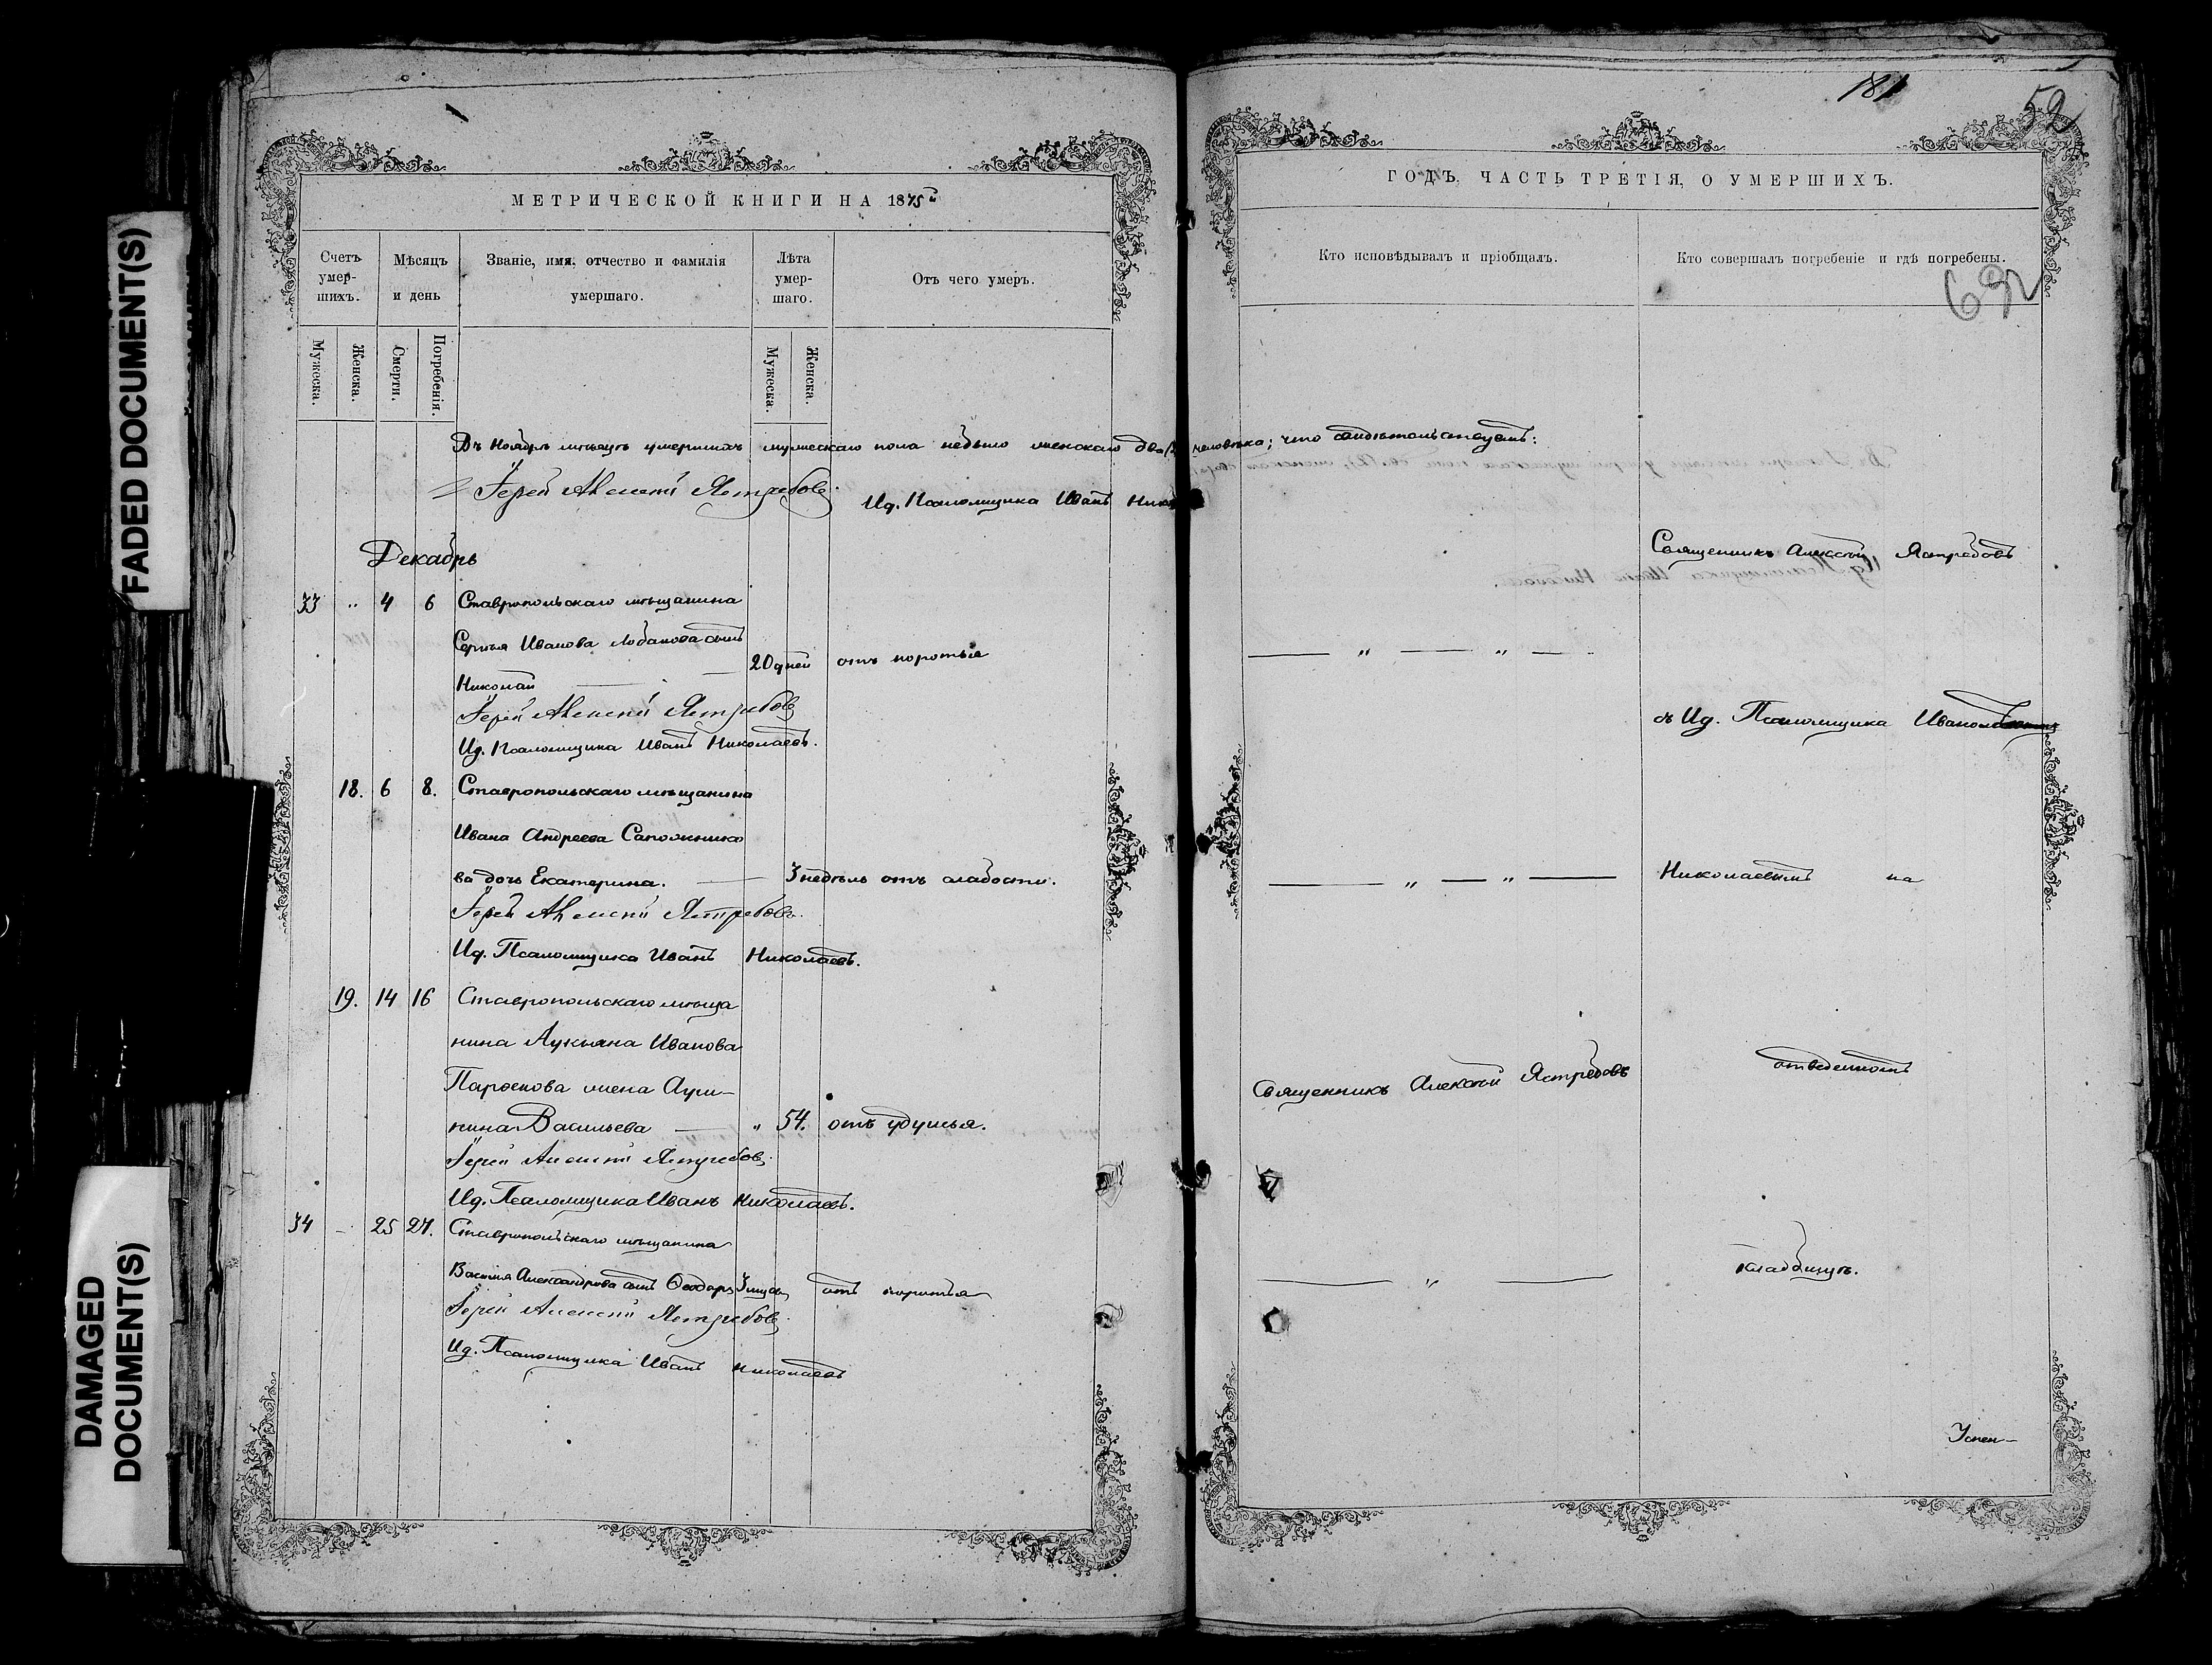 FADED DOCUMENT(S)
DAMAGED
DOCUMENT(S)
МЕТРИЧЕСКОЙ КНИГИ НА 1875й
Счетъ умер-шихъ.
Мѣсяцъ и день
Званіе, имя, отчество и фамилія умершаго.
Лѣта умер-шаго.
Отъ чего умеръ.
Мужеска.
Женска.
Смерти.
Погребенія.
Мужеска.
Женска.
Въ Ноябрѣ мѣсяцѣ умершихъ мужескаго пола небыло женскаго два человѣка; что свидѣтельствуемъ:
Іерей Алексѣй Ястребовъ.
Ид. Псаломщика Иванъ Ник
Декабрь
33 " 4 6 Ставропольскаго мѣщанина
Сергѣя Иванова Лобанова сынъ
Николай — 20 дней отъ поротья
Іерей Алексѣй Ястребовъ
Ид. Псаломщика Иванъ Николаевъ.
18. 6 8. Ставропольскаго мѣщанина
Ивана Андреева Сапожнико
ва дочь Екатерина. — 3 недѣль отъ слабости.
Іерей Алексѣй Ястребовъ.
Ид. Псаломщика Иванъ Николаевъ.
19. 14 16 Ставропольскаго мѣща
нина Лукьяна Иванова
жена
нина Васильева — " 54. отъ удушья.
Іерей Алексѣй Ястребовъ.
Ид. Псаломщика Иванъ Николаевъ.
34 - 25 27. Ставропольскаго мѣщанина
Василія Александрова сынъ Ѳеодоръ 3 отъ поротья
Іерей Алексѣй Ястребовъ.
Ид. Псаломщика Иванъ Николаевъ
181
52
ГОДЪ, ЧАСТЬ ТРЕТІЯ, О УМЕРШИХЪ.
Кто исповѣдывалъ и пріобщалъ.
Кто совершалъ погребеніе и гдѣ погребены.
Священникъ Алексѣй Ястребовъ
— " — " —
съ Ид. Псаломщика Иваномъ
— " — " —
Николаевымъ на
Священникъ Алексѣй Ястребовъ
отведенномъ
— " —
кладбищѣ.
Успен-